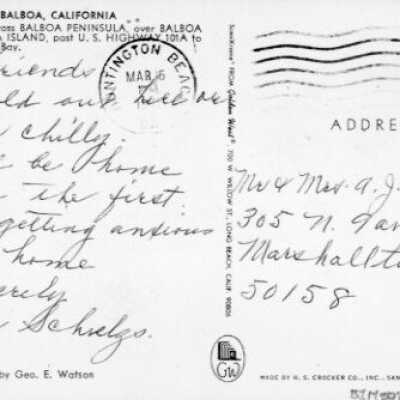 BALBOA, CALIFORNIA
oss BALBOA PENINSULA, over BALBOA
ISLAND, past U. S. HIGHWAY 101A to
Bay.
friends
ld out here or
chilly.
be home
the first.
getting anxious
home
erely
Schulzs.
by Geo. E. Watson
HUNTINGTON BEACH
MAR 6
ScenicKrome® FROM Golden West® 700 W. WILLOW ST., LONG BEACH, CALIF. 90806
ADDRE
Mr & Mrs. A. J.
305 N.
Marshallt
50158
GW
MADE BY H. S. CROCKER CO., INC., SAN